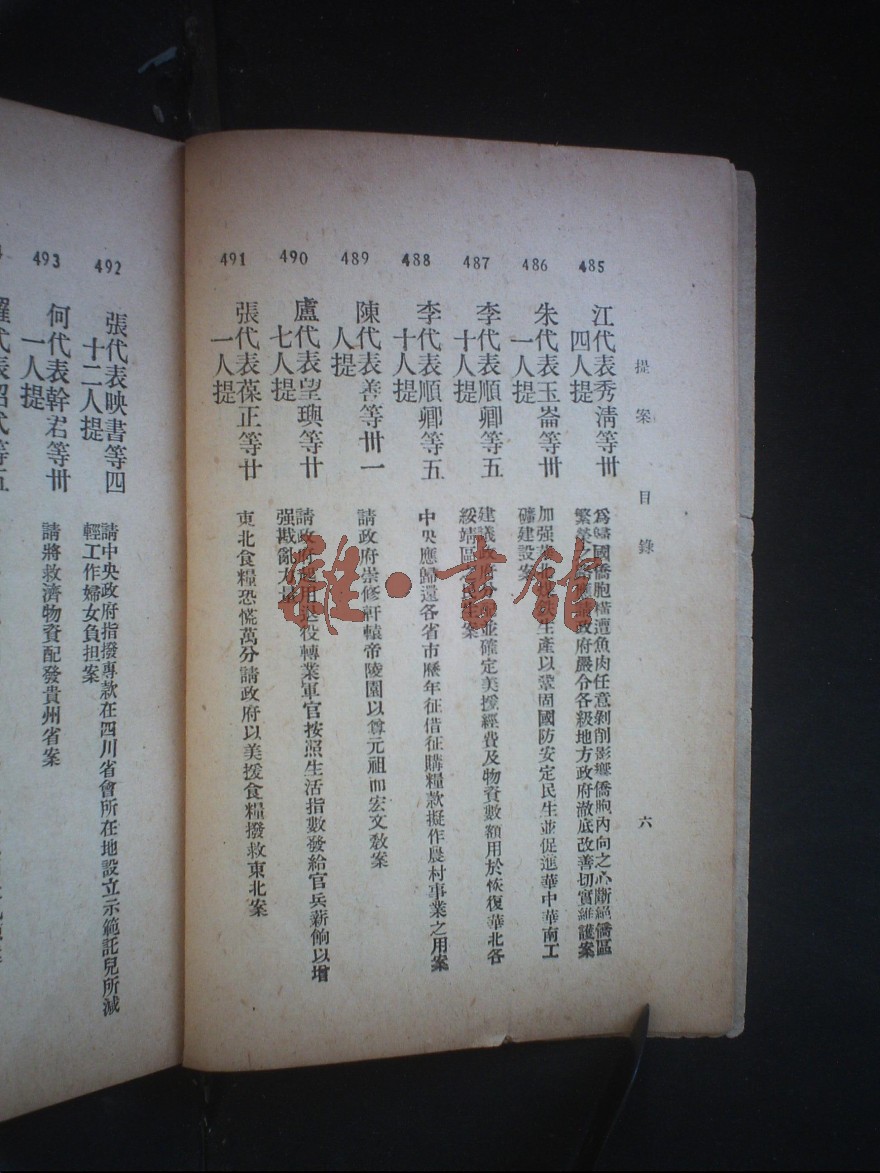 提案 目錄 六
485
江代表秀清等卅
四人提
為歸國僑胞橫遭魚肉任意剝削影響僑胞內向之心斷絕僑區
繁榮之 政府嚴令各級地方政府澈底改善切實維護案
486
朱代表玉崙等卅
一人提
加强 生產以鞏固國防安定民生並促進華中華南工
礦建設案
487
李代表順卿等五
十人提
建議政府 並確定美援經費及物資數額用於恢復華北各
綏靖區 民生案
488
李代表順卿等五
十人提
中央應歸還各省市歷年征借征購糧款擬作農村事業之用案
489
陳代表善等卅一
人提
請政府崇修軒轅帝陵園以尊元祖而宏文教案
490
盧代表望璵等廿
七人提
請政府起用退役轉業軍官按照生活指數發給官兵薪餉以增
强戡亂力量
491
張代表葆正等廿
一人提
東北食糧恐慌萬分請政府以美援食糧撥救東北案
492
張代表映書等四
十二人提
請中央政府指撥專款在四川省會所在地設立示範託兒所減
輕工作婦女負担案
493
何代表幹君等卅
一人提
請將救濟物資配發貴州省案
羅代表紹
雜·書館